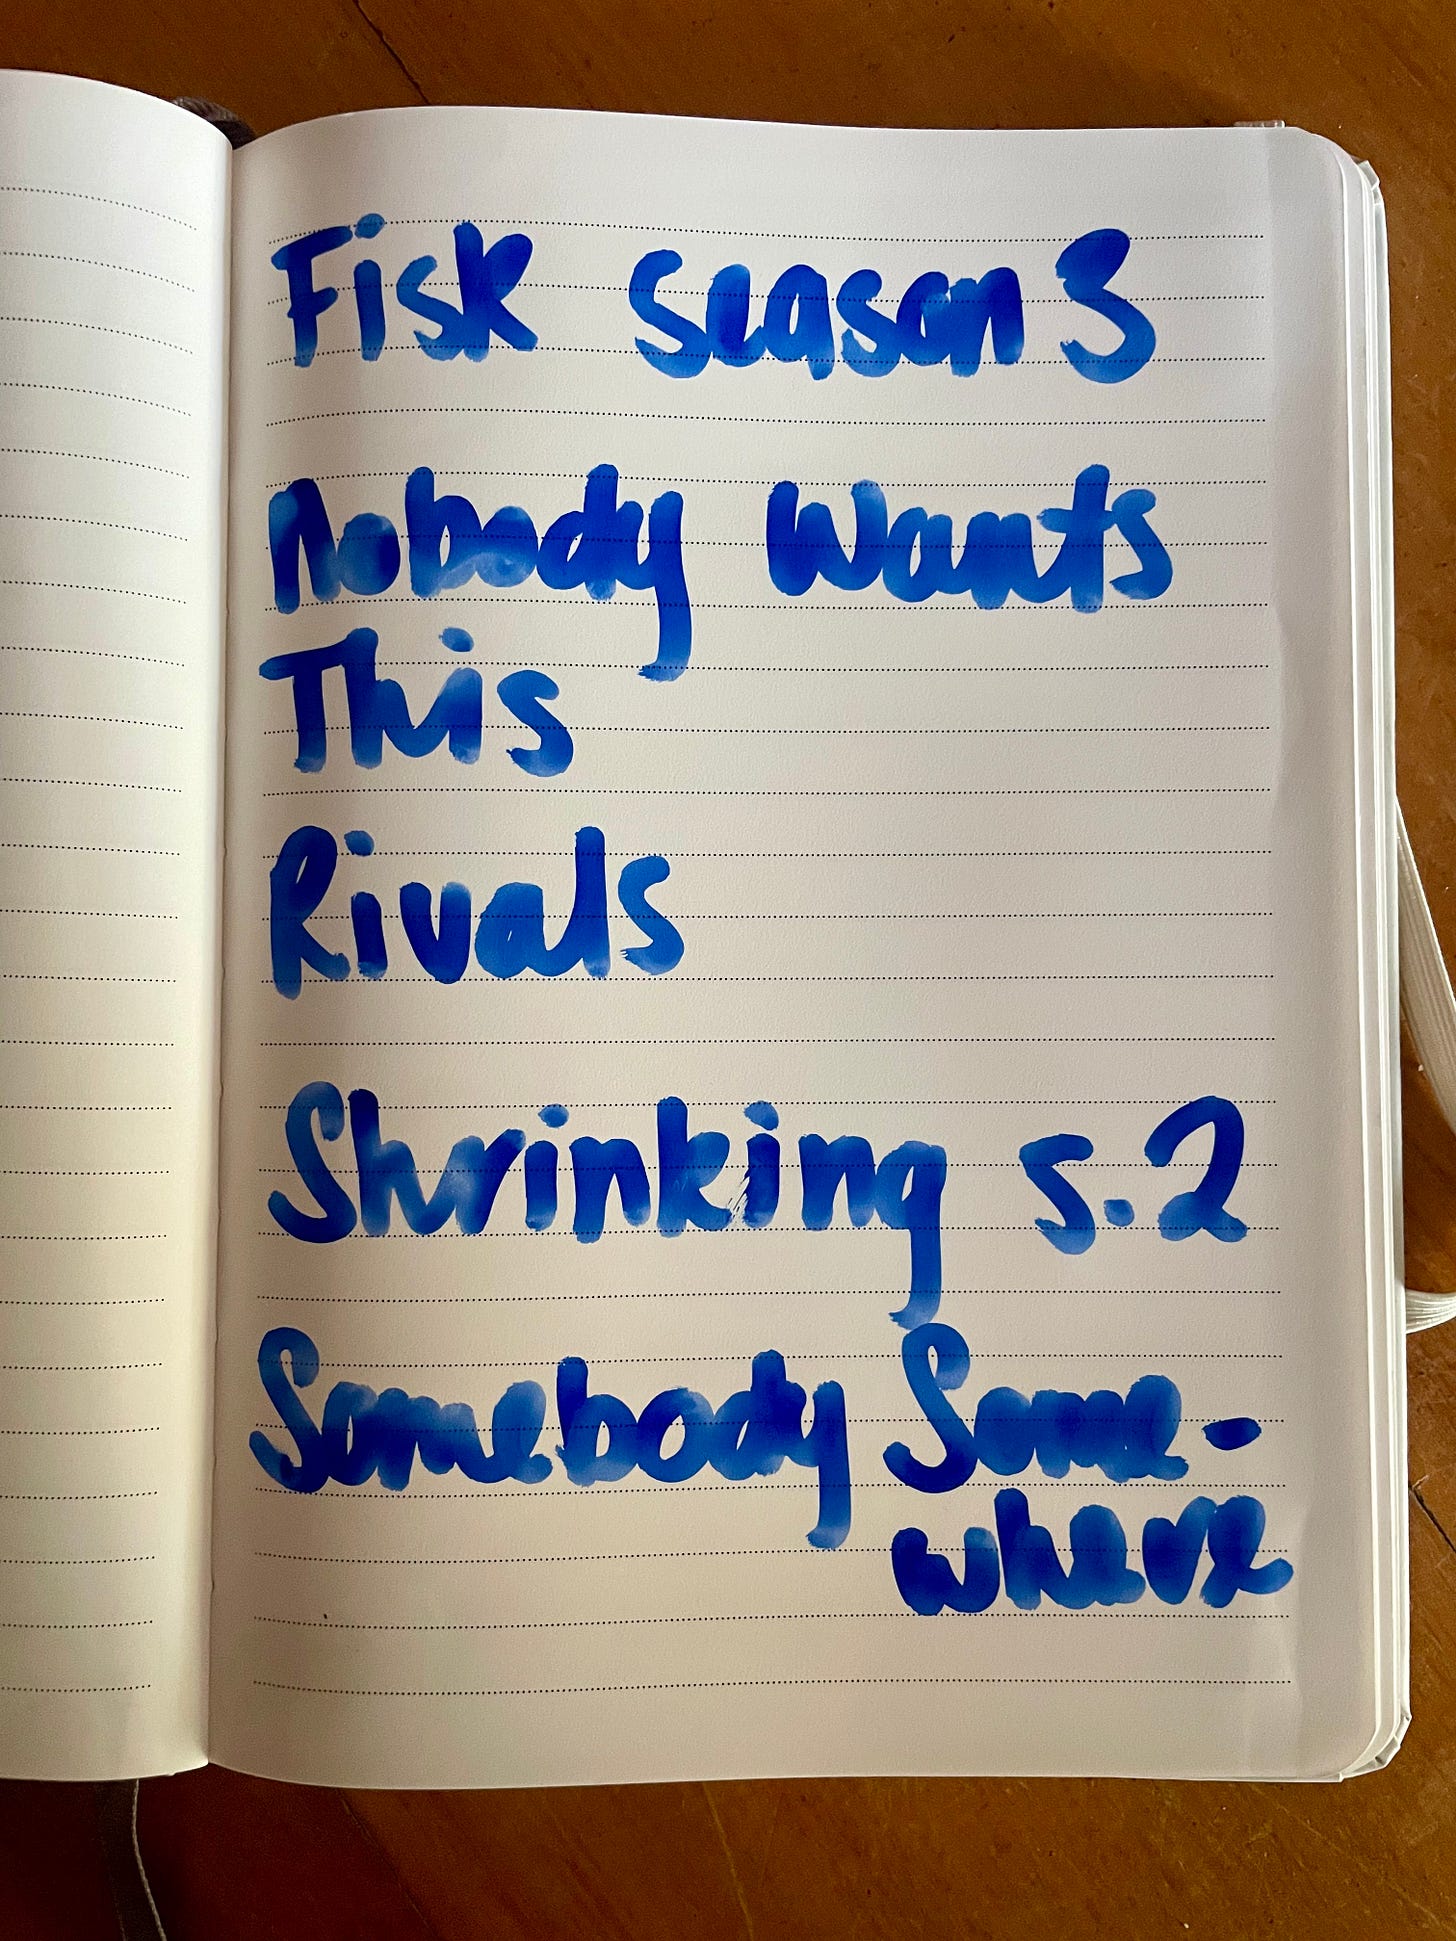 Fisk season 3
Nobody Wants
This
Rivals
Shrinking s.2
Somebody Some-
where